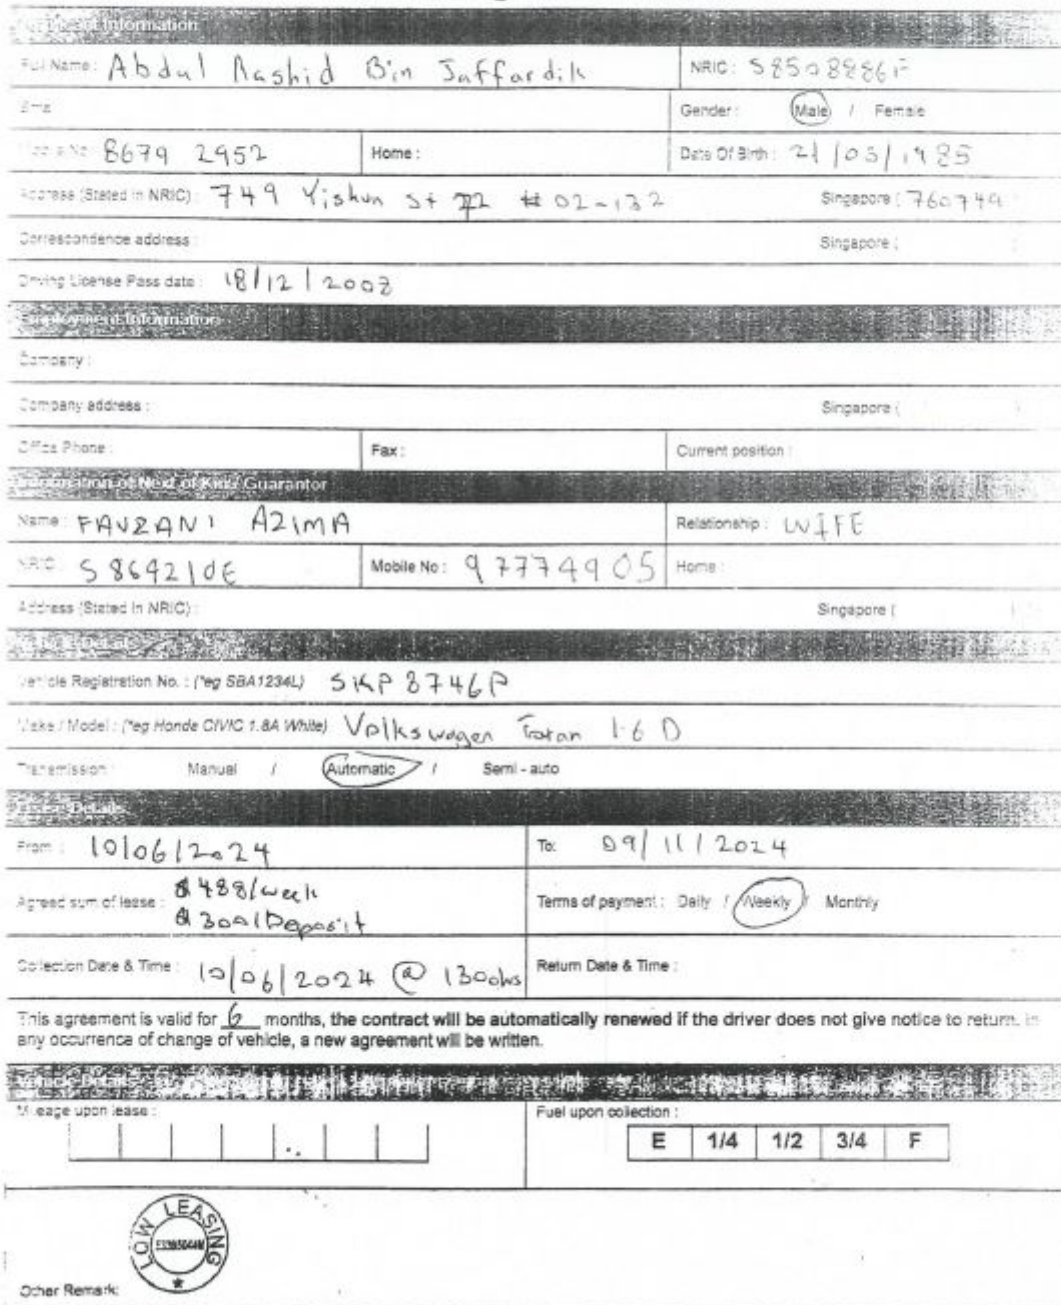 Information
Full Name: Abdul Rashid Bin Jaffardik NRIC: S8508886F
Gender: Male / Female
Mobile No: 8679 2952 Home: Date Of Birth: 21/03/1985
Address (Stated in NRIC): 749 Yishun St 72 # 02-132 Singapore ( 760749
Correspondence address: Singapore (
Driving License Pass date: 18/12/2008
Employment Information
Company:
Company address: Singapore (
Office Phone: Fax: Current position:
Information of Next of Kins/ Guarantor
Name: FAUZANI AZIMA Relationship: WIFE
NRIC: S864210E Mobile No: 97774905 Home:
Address (Stated in NRIC): Singapore (
Vehicle Registration No.: (*eg SBA1234L) SKP8746P
Make / Model: (*eg Honda CIVIC 1.8A White) Volkswagen 1.6 D
Transmission: Manual / Automatic / Semi - auto
Lease Details
From: 10/06/2024 To: 09/11/2024
Agreed sum of lease: $488/week Terms of payment: Daily / Weekly / Monthly
$300/Deposit
Collection Date & Time: 10/06/2024 @ 1300hrs Return Date & Time:
This agreement is valid for 6 months, the contract will be automatically renewed if the driver does not give notice to return. In
any occurrence of change of vehicle, a new agreement will be written.
Vehicle Details
Mileage upon lease: Fuel upon collection:
E 1/4 1/2 3/4 F
LOW LEASING
Other Remark: